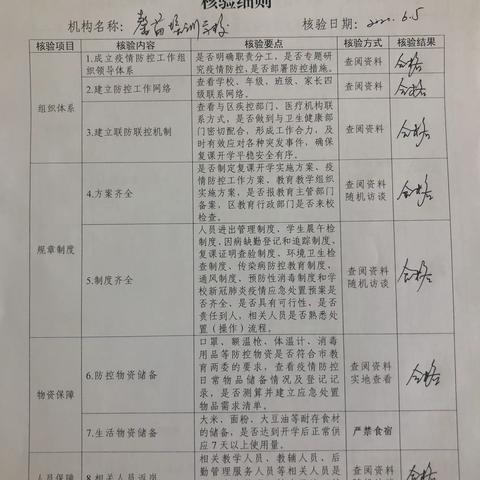 核验细则
机构名称：馨蕾培训学校 核验日期：2020.6.5
核验项目 核验内容 核验要点 核验方式 核验结果
组织体系
1.成立疫情防控工作组
织领导体系
是否明确职责分工，是否专题研
究疫情防控，是否部署防控措施。
查阅资料
合格
2.建立防控工作网络
查看学校、年级、班级、家长四
级联系网络。
查阅资料
合格
3.建立联防联控机制
查看与区疾控部门、医疗机构联
系方式，是否做到与卫生健康部
门密切配合，形成工作合力，及
时有效应对各种突发事件，确保
复课开学平稳安全有序。
查阅资料
合格
规章制度
4.方案齐全
是否制定复课开学实施方案、疫
情防控工作方案、教育教学组织
实施方案，是否报教育主管部门
备案，区教育行政部门是否来校
检查。
查阅资料
随机访谈
合格
5.制度齐全
人员进出管理制度，学生晨午检
制度,因病缺勤登记和追踪制度，
复课证明查验制度、环境卫生检
查制度、传染病防控教育制度，
通风制度、预防性消毒制度和学
校新冠肺炎疫情应急处置预案是
否齐全、是否具有可行性，是否
责任到人，相关人员是否熟悉处
置（操作）流程。
查阅资料
随机访谈
合格
物资保障
6.防控物资储备
口罩、额温枪、体温计、消毒
用品等防控物资是否符合市教
育两委的要求，查看疫情防控
日常物品储备情况及登记记
录，是否测算并建立应急处置
物品需求清单。
查阅资料
实地查看
合格
7.生活物资储备
大米、面粉、大豆油等耐存食材
的储备，是否达到开学后正常供
应7天以上使用量。
严禁食宿
人员保障
8.相关人员返岗
相关教学人员、教辅人员、后
勤管理服务人员等相关人员是
查阅资料
合格